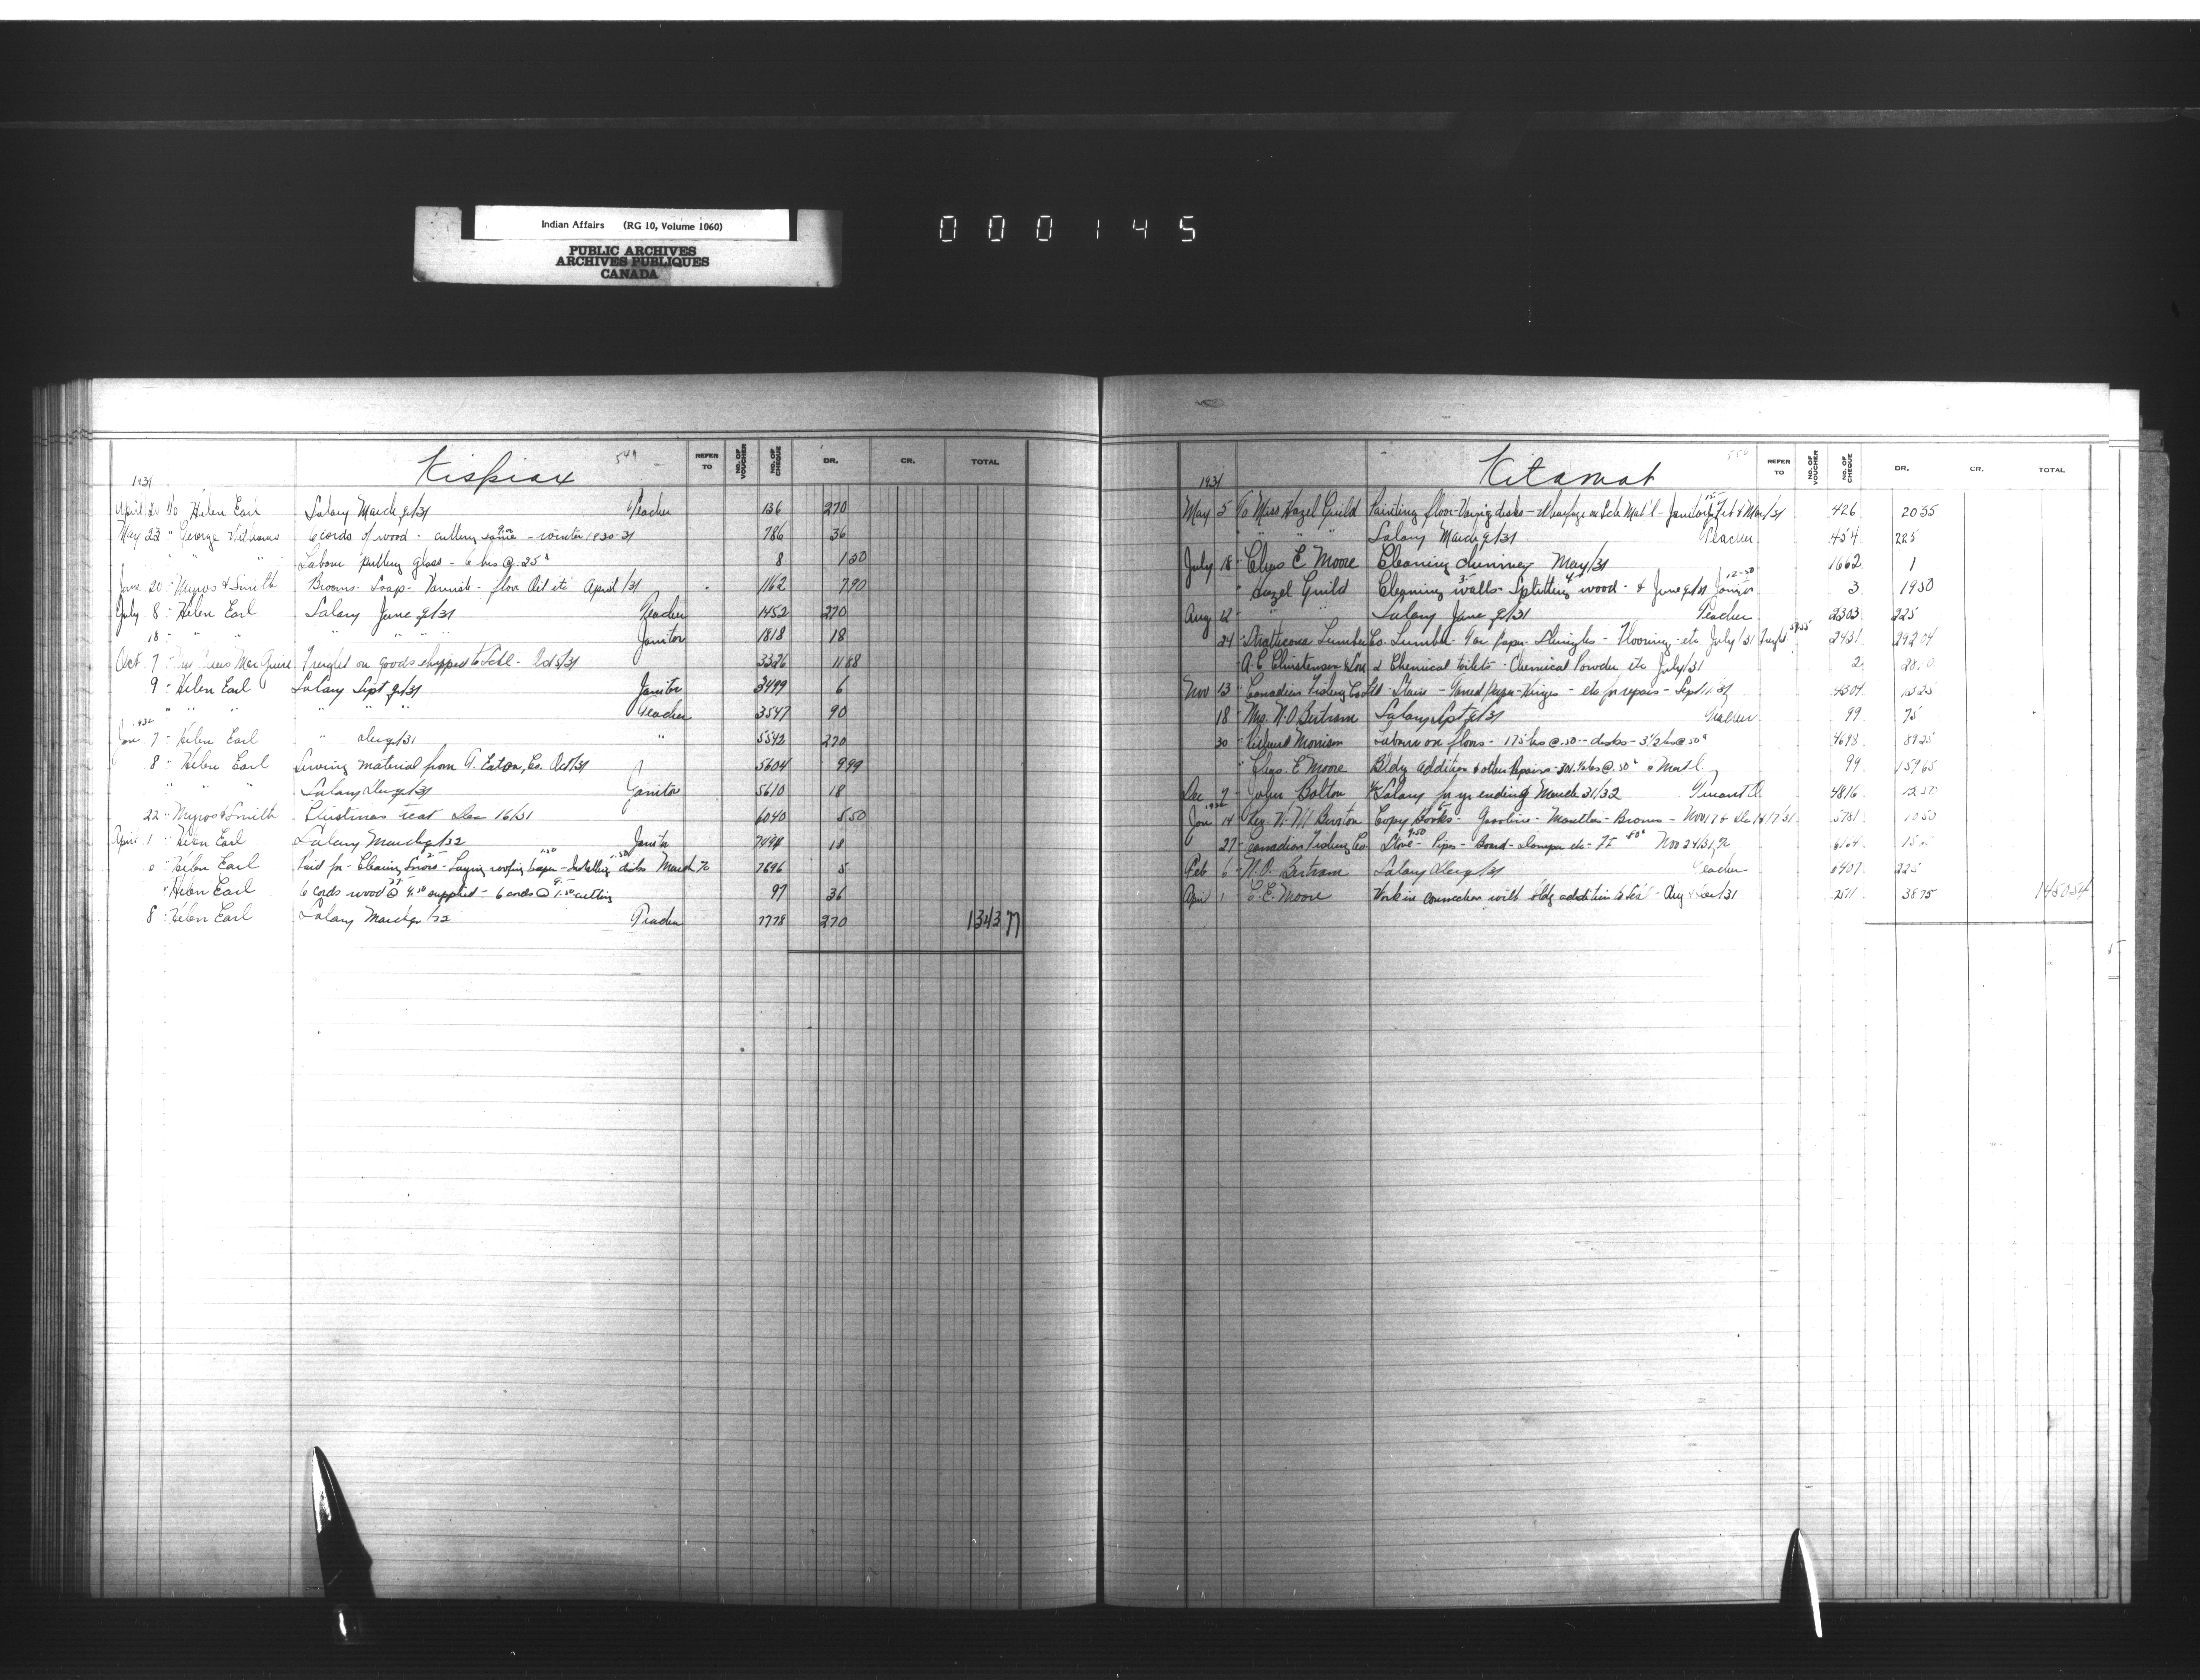 Indian Affairs (RG 10, Volume 1060)
PUBLIC ARCHIVES
ARCHIVES PUBLIQUES
CANADA
000145
Kispiox 549
REFER TO NO. OF VOUCHER NO. OF CHEQUE DR. CR. TOTAL
1931
April 20 To Helen Earl Salary March q/31 Teacher 136 270
May 23 " George Williams 6 cords of wood - cutting same 9.00 - winter 1930-31 786 36
" " Labour putting glass - 6 hrs @ .25¢ 8 1 50
June 20 " Myros & Smith Brooms - Soap - Varnish - floor Oil etc April/31 1162 7 90
July 8 " Helen Earl Salary June q/31 Teacher 1452 270
18 " " " " " " Janitor 1818 18
Oct 7 " MacGuire Freight on goods shipped to Schl - Oct 5/31 3326 11 88
9 " Helen Earl Salary Sept q/31 Janitor 3499 6
" " " " " Teacher 3547 90
1932
Jan 7 " Helen Earl " Dec q/31 " 5542 270
8 " Helen Earl Sewing material from T. Eaton, Co. Oct/31 5604 9 99
" " Salary Dec q/31 Janitor 5610 18
22 " Myros & Smith Christmas treat Dec 16/31 6040 5 50
April 1 " Helen Earl Salary March q/32 Janitor 7494 18
" Helen Earl Paid for - Cleaning Snow 2 - Laying roofing paper 1.50 - Installing desks 1.50 March/32 7696 5
" Helen Earl 6 cords wood @ 4.50 27 supplied - 6 cords @ 1.50 9 cutting 97 36
8 " Helen Earl Salary March q/32 Teacher 7778 270 1343 77
Kitamat 550
REFER TO NO. OF VOUCHER NO. OF CHEQUE DR. CR. TOTAL
1931
May 5 To Miss Hazel Guild Painting floor - desks - Wharfage on Schl Mat'l - Janitor Feb & Mar/31 426 20 35
" " " Salary March q/31 Teacher 454 225
July 18 " Chas E Moore Cleaning chimney May/31 1662 1
" Hazel Guild Cleaning walls 3 - Splitting wood 4 - & June q/31 Janitor 12.50 3 19 50
Aug 12 " " " Salary June q/31 Teacher 2303 225
24 " Strathcona Lumber Co. Lumber - Tar paper - Shingles - Flooring - etc July/31 Freight 2431 242 04
" A.C. Christensen & Son 2 Chemical toilets - Chemical Powder etc July/31 2
Nov 13 " Canadian Fishing Co Ltd Stain - Tarred paper - Hinges - etc for repairs - Sept 11/31 4304 15 25
18 " Mrs. N.O Bertram Salary Sept q/31 Teacher 99 75
30 " Morrison Labour on floors - 175 hrs @ .50 - desks - 3 1/2 hrs @ 50¢ 4698 89 25
" Chas. E Moore Bldg addition & other Repairs - @ .50¢ & Mat'l. 99 159 65
Dec 7 " John Bolton Salary for yr ending March 31/32 Truant O. 4816 12 50
1932
Jan 14 " Rev. Burton Copy Books - Gasoline - Mantles - Brooms - Nov 17 & Dec 5781 10 50
27 " Canadian Fishing Co. Stove 9.50 - Pipes - Board - Damper etc - Ft .80¢ Nov 24/31
Feb 6 " N.O. Bertram Salary Dec q/31 Teacher 6407 225
April 1 " C.E. Moore Work in connection with bldg addition to Schl - Aug & Sep/31 38 75 1450 54